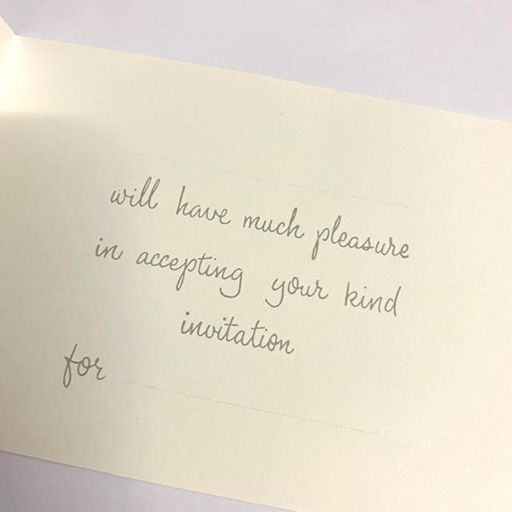 will have much pleasure
in accepting your kind
invitation
for